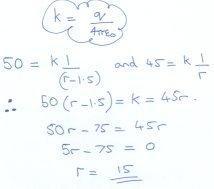 k = q / 4πε₀
50 = k 1/(r-1.5) and 45 = k 1/r
∴ 50(r-1.5) = k = 45r.
50r - 75 = 45r
5r - 75 = 0
r = 15